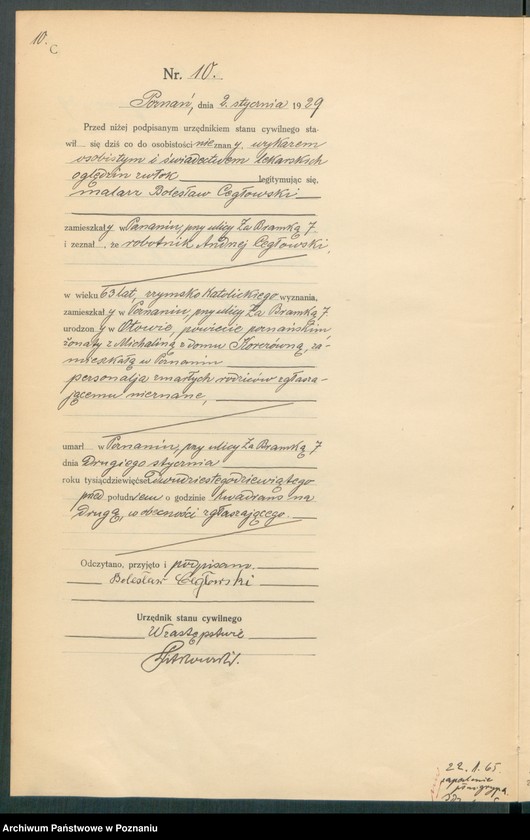 10.
C
Nr. 10.
Poznań, dnia 2. stycznia 1929
Przed niżej podpisanym urzędnikiem stanu cywilnego sta-
wił się dziś co do osobistości nieznany, wykazem
osobistym i świadectwem lekarskich
oględzin zwłok legitymując się,
malarz Bolesław Cegłowski
zamieszkały w Poznaniu, przy ulicy Za Bramką 7
i zeznał, że robotnik Andrzej Cegłowski,
w wieku 63 lat, rzymsko katolickiego wyznania,
zamieszkały w Poznaniu, przy ulicy Za Bramką 7.
urodzony w powiecie poznańskim
żonaty z Michaliną z domu za-
mieszkałą w Poznaniu
personalja zmarłych rodziców zgłasza-
jącemu nieznane,
umarł w Poznaniu, przy ulicy Za Bramką 7
dnia drugiego stycznia
roku tysiącdziewięćset dwudziestegodziewiątego
przed południem o godzinie kwadrans na
drugą, w obecności zgłaszającego.
Odczytano, przyjęto i podpisano.
Bolesław Cegłowski
Urzędnik stanu cywilnego
W zastępstwie
22. 1. 65.
zapalenie
Archiwum Państwowe w Poznaniu